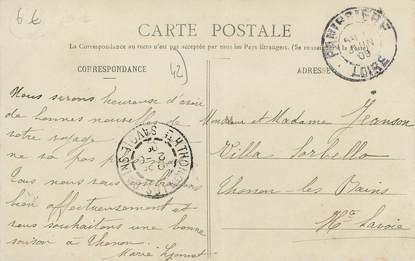 6 €
CARTE POSTALE
La Correspondance au recto n'est pas acceptée par tous les Pays Étrangers. (Se
CORRESPONDANCE
42
ADRESSE
PANISSIÈRE
JUIN
09
LOIRE
Nous serons heureuse d'avoir
de bonnes nouvelles de
votre
ne pas
THONON-LES-BAINS
HTE SAVOIE
Monsieur et Madame Jeanson
Villa Sorbello
Thonon-les Bains
Hte Savoie
Nous nous
bien affectueusement et
vous souhaitons une bonne
saison à Thonon.
Marie